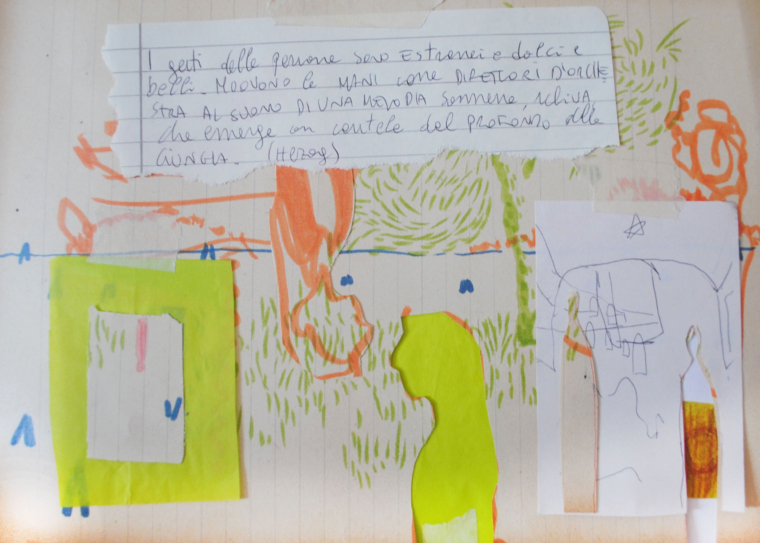 I gesti delle persone sono EStranei e dolci e
belli. MUOVONO le MANI come DIRETTORI D'ORCHE
STRA AL SUONO DI UNA MELODIA sommessa, schiva
che emerge con cautela dal PROFONDO della
GIUNGLA. (Herzog)